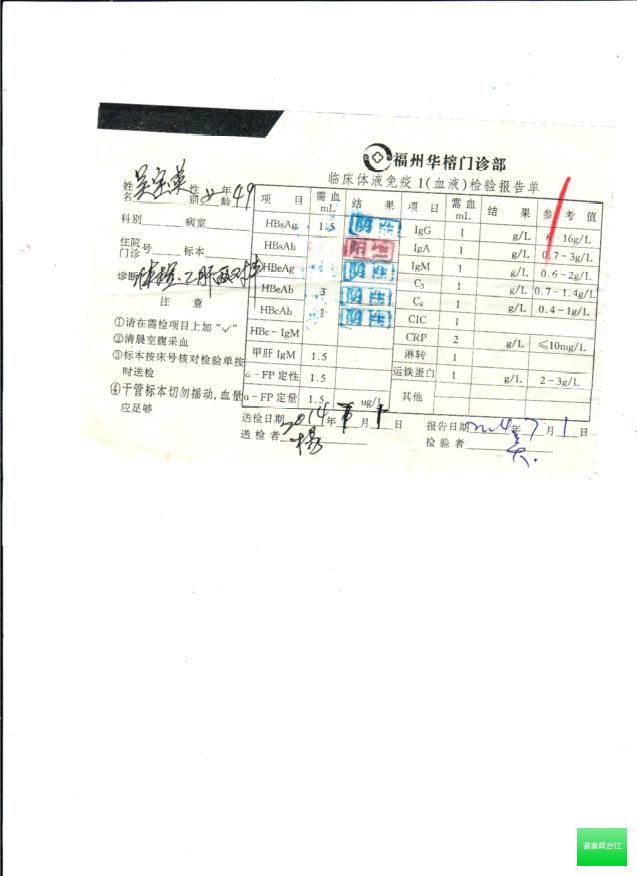 福州华榕门诊部
临床体液免疫1(血液)检验报告单
姓名 性别 女 年龄 49
科别 病室
住院号 门诊 标本
诊断 体检、乙肝两对半
注 意
①请在需检项目上加“✓”
②清晨空腹采血
③标本按床号核对检验单按时送检
④干管标本切勿摇动,血量应足够
项 目 需血mL 结 果 项 目 需血mL 结 果 参 考 值
HBsAg 1.5 阴性 IgG 1 g/L 6 16g/L
HBsAb 阳性 IgA 1 g/L 0.7-3g/L
HBeAg 阴性 IgM 1 g/L 0.6-2g/L
HBeAb 3 阴性 C₃ 1 g/L 0.7-1.4g/L
HBcAb 阴性 C₄ 1 g/L 0.4-1g/L
HBc-IgM CIC 1
甲肝IgM 1.5 CRP 2 g/L ≤10mg/L
α-FP定性 1.5 淋转 1
α-FP定量 1.5 ug/L 运铁蛋白 1 g/L 2-3g/L
其他
送检日期 2014年 月 1日 报告日期 2014年7月1日
送检者 检验者
省家政台江